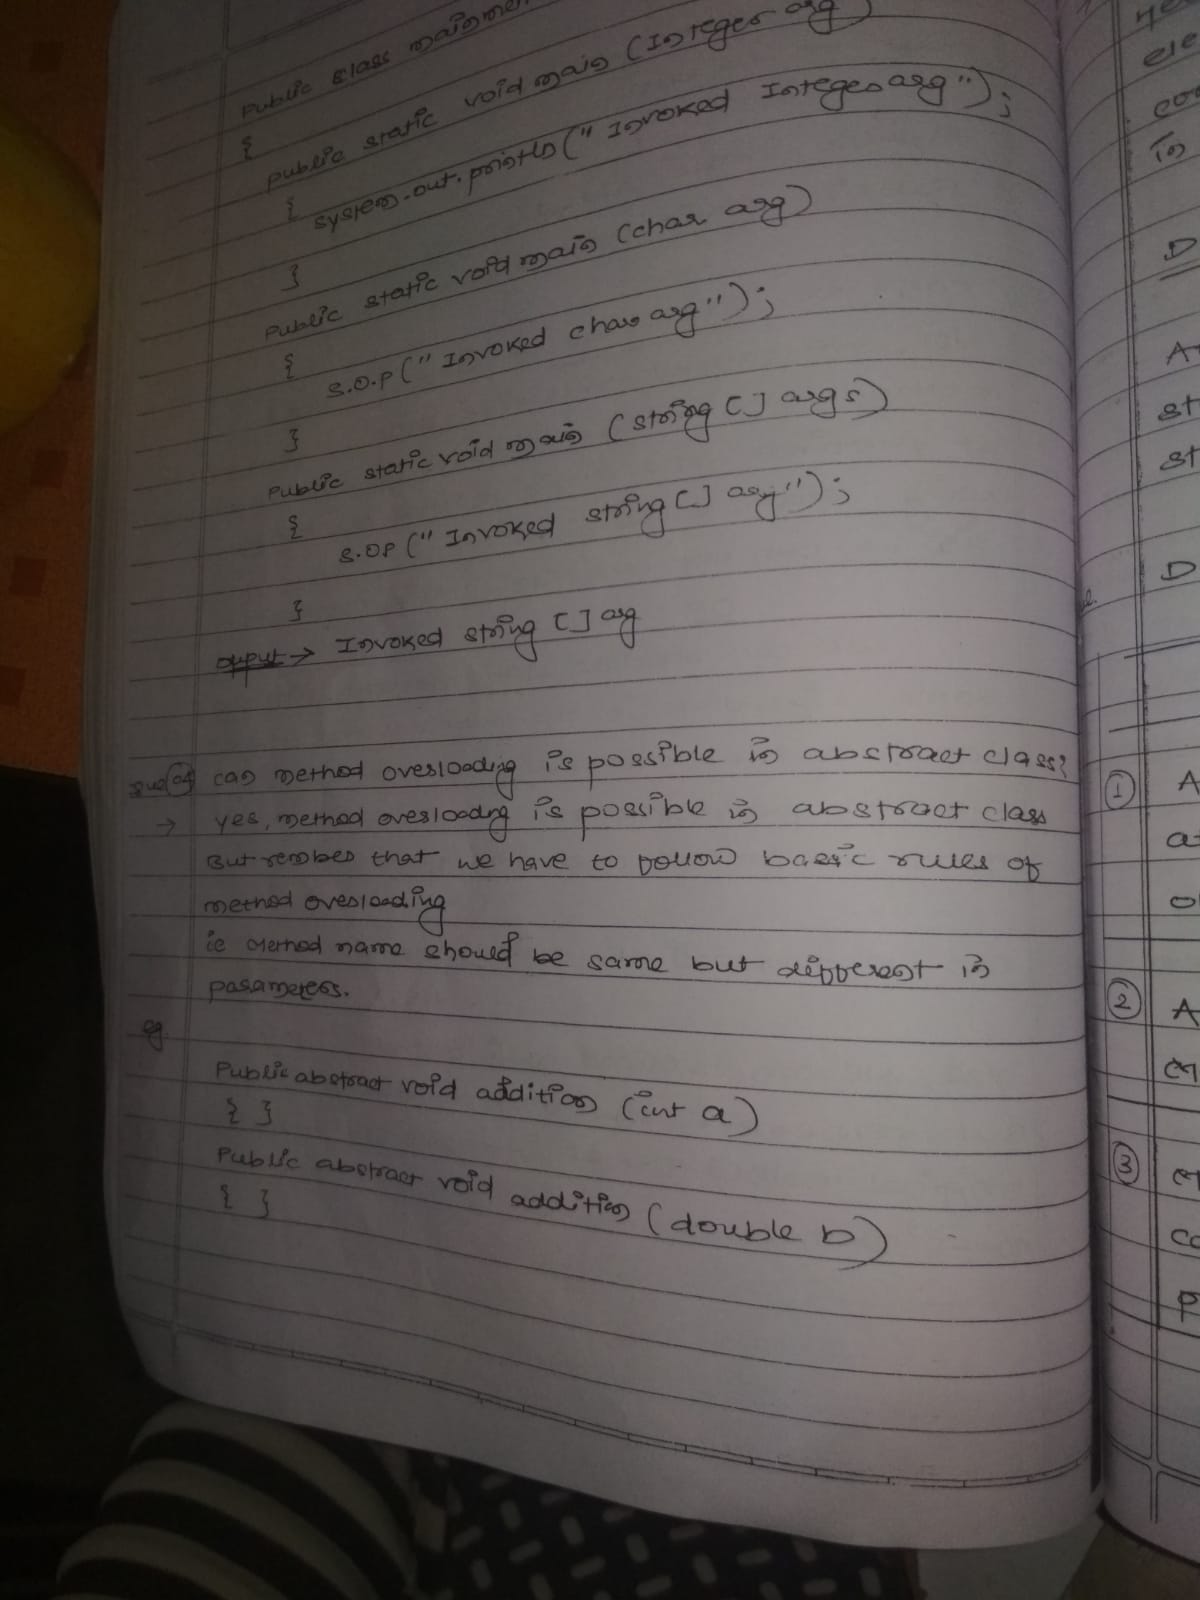 Public class
{
public static void main (Integer arg)
{
system.out.println(" Invoked Integer arg");
}
public static void main (char arg)
{
S.O.P (" Invoked char arg");
}
public static void main (string [] args)
{
S.OP (" Invoked string [] arg");
}
output → Invoked string [] arg
can method overloading is possible in abstract class?
→ yes, method overloading is possible in abstract class
But rember that we have to follow basic rules of
method overloading
ie method name should be same but different in
parameters.
eg.
Public abstract void addition (int a)
{ }
Public abstract void addition (double b)
{ }
in
D
A
st
st
D
① A
②  A
③
P